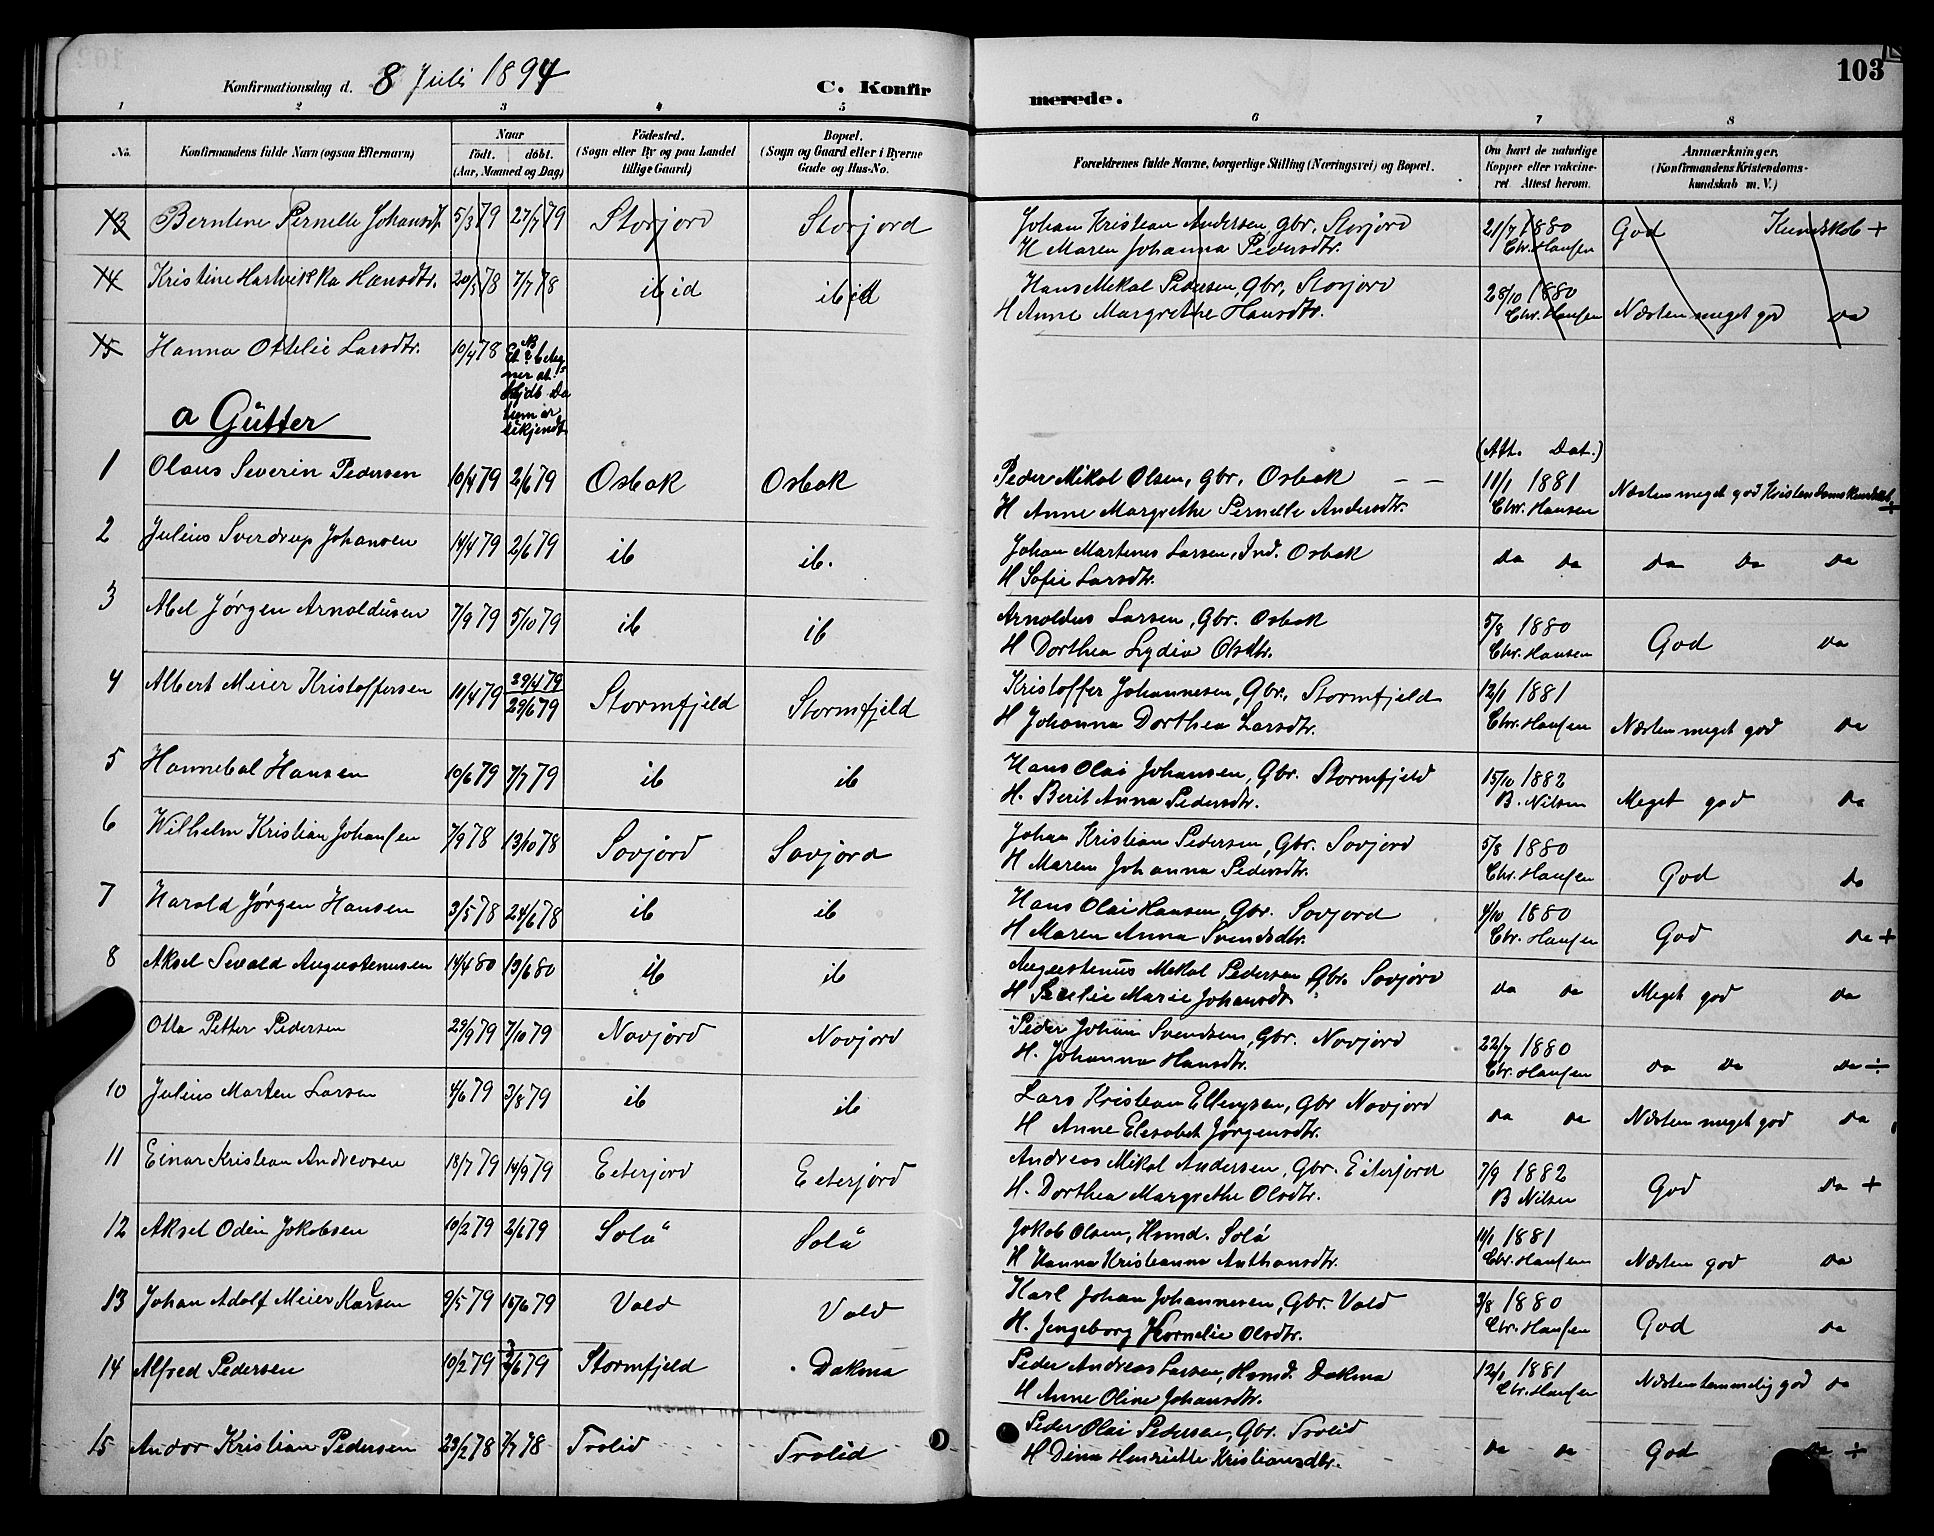 103
Konfirmationsdag d. 8 Juli 1894
C. Konfirmerede.
1 2 3 4 5 6 7 8
No. Konfirmandens fulde Navn (ogsaa Efternavn) Naar født. døbt. (Aar, Maaned og Dag) Fødested. (Sogn eller By og paa Landet tillige Gaard) Bopæl. (Sogn og Gaard eller i Byerne Gade og Hus-No. Forældrenes fulde Navne, borgerlige Stilling (Næringsvei) og Bopæl. Om havt de naturlige Kopper eller vakcineret. Attest herom. Anmærkninger. (Konfirmandens Kristendomskundskab m. V.)
13 Berntine Pernelle Johansdt. 5/3 79 27/7 79 Storjord Storjord Johan Kristian Andersen, Gbr, Storjord 21/7 1880 God Kundskab +
H Maren Johanna Pedersdtr. Chr. Hansen
14 Kristine Hartvikka Hansdtr. 20/5 78 7/7 78 ibid ibid Hans Mikal Pedersen, Gbr, Storjord 28/10 1880
H Anne Margrethe Hansdtr. Chr. Hansen Næsten meget god da
15 Hanna Ottelie Larsdtr. 10/4 78
a Gütter
(Att. Dat.)
1 Olaus Severin Pedersen 10/4 79 2/6 79 Osbak Osbak Peder Mikal Olsen, Gbr, Osbak — — 11/1 1881 Næsten meget god Kristendomskundskab
H Anne Margrethe Pernelle Andersdtr. Chr. Hansen
2 Julius Sverdrup Johansen 14/4 79 2/6 79 ib ib. Johan Martinus Larsen, Ind. Osbak da da da da da
H Sofie Larsdtr.
3 Abel Jørgen Arnoldüsen 7/9 79 5/10 79 ib ib Arnoldus Larsen, Gbr. Osbak 5/8 1880 God da
H Dorthea Lydia Olsdtr. Chr. Hansen
4 Albert Meier Kristoffersen 10/4 79 29/4 79 29/6 79 Stormfjeld Stormfjeld Kristoffer Johannesen, Gbr, Stormfjeld 12/1 1881
H Johanna Dorthea Larsdtr. Chr. Hansen Næsten meget god da
5 Hannebal Hansen 10/6 79 7/7 79 ib ib Hans Olai Johansen, Gbr. Stormfjeld 15/10 1882
H. Berit Anna Pedersdtr. B. Nilsen Meget god da
6 Wilhelm Kristian Johansen 7/9 78 13/10 78 Sovjord Sovjord Johan Kristian Pedersen, Gbr. Sovjord 5/8 1880
H Maren Johanna Pedersdtr. Chr. Hansen God da
7 Harald Jørgen Hansen 3/5 78 24/6 78 ib ib Hans Olai Hansen, Gbr. Sovjord 4/10 1880
H Maren Anna Svendsdtr. Chr. Hansen God da +
8 Aksel Sevald Augustinusen 14/4 80 13/6 80 ib ib Augustinus Mikal Pedersen Gbr. Sovjord da da Meget god da
H Secelie Marie Johansdt
Otto Petter Pedersen 29/9 79 7/10 79 Novjord Novjord Peder Johan Svendsen, Gbr. Novjord 22/7 1880
H. Johanna Hansdtr. Chr. Hansen da da da ÷
10 Julius Marten Larsen 4/6 79 3/8 79 ib ib Lars Kristian Ellingsen, Gbr Novjord da da Næsten meget god da
H Anne Elesabet Jørgensdtr.
11 Einar Kristian Andreasen 18/7 79 14/9 79 Eeterjord Eeterjord Andreas Mikal Andersen, Gbr. Eiterjord 7/9 1882
H. Dorthea Margrethe Olsdtr. B Nilsen God da +
12 Aksel Odin Jakobsen 10/2 79 2/6 79 Solå Solå Jakob Olsen, Hsmd. Solå 11/1 1881
H Hanna Kristianna Anthonsdtr. Chr. Hansen Næsten god da
13 Johan Adolf Meier Karlsen 9/5 79 15/6 79 Vald Vald Karl Johan Johannesen, Gbr. Vald 3/8 1880
H. Jngeborg Kornelie Olsdtr. Chr. Hansen God da
14 Alfred Pedersen 10/2 79 2/6 79 Stormfjeld Dokma Peder Andreas Larsen, Hsmd. Dokma 12/1 1881
H Anne Oline Johansdtr. Chr. Hansen Næsten temmelig god da
15 Andor Kristian Pedersen 23/2 78 7/7 78 Trolid Trolid Peder Olai Pedersen, Gbr. Trolid da da God da ÷
H Dina Henriette Kristiansdtr.